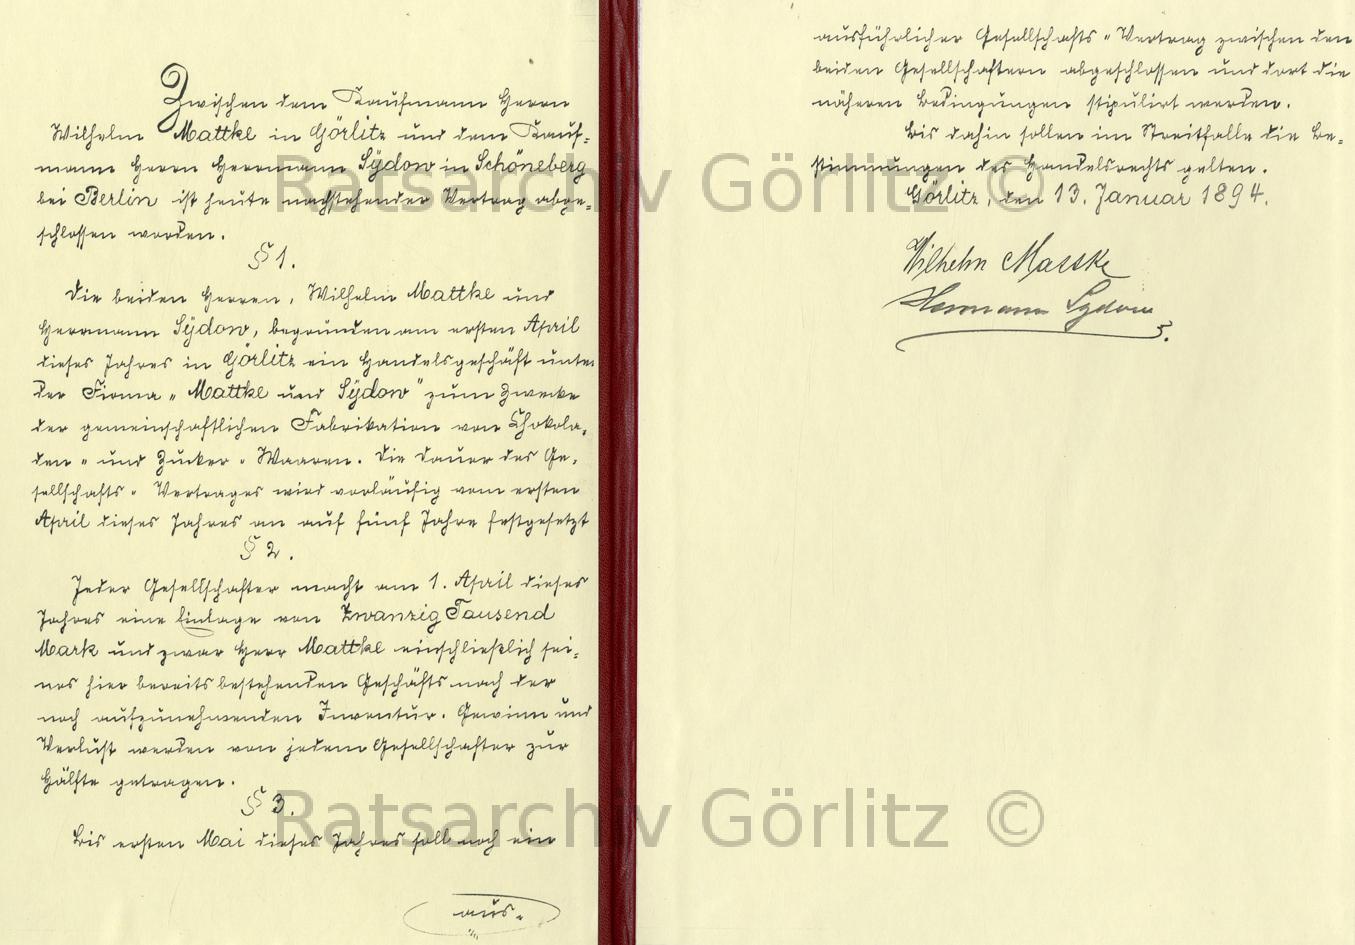 Zwischen dem Kaufmann Herrn
Wilhelm Mattke in Görlitz und dem Kauf-
mann Herrn Herrmann Sÿdow in Schöneberg
bei Berlin ist heute nachstehender Vertrag abge-
schlossen worden.
§ 1.
Die beiden Herren, Wilhelm Mattke und
Herrmann Sÿdow, begründen am ersten April
dieses Jahres in Görlitz ein Handelsgeschäft unter
der Firma „Mattke und Sÿdow" zum Zwecke
der gemeinschaftlichen Fabrikation von Chokola-
den- und Zucker-Waaren. Die Dauer des Ge-
sellschafts-Vertrages wird vorläufig vom ersten
April dieses Jahres an auf fünf Jahre festgesetzt
§ 2.
Jeder Gesellschafter macht am 1. April dieses
Jahres eine Einlage von Zwanzig Tausend
Mark und zwar Herr Mattke einschließlich sei-
nes hier bereits bestehenden Geschäfts nach der
noch aufzunehmenden Inventur. Gewinn und
Verlust werden von jedem Gesellschafter zur
Hälfte getragen.
§ 3.
Bis ersten Mai dieses Jahres soll noch ein
aus-
ausführlicher Gesellschafts-Vertrag zwischen den
beiden Gesellschaftern abgeschlossen und dort die
näheren Bedingungen stipulirt werden.
Bis dahin sollen im Streitfalle die Be-
stimmungen des Handelsrechts gelten.
Görlitz, den 13. Januar 1894.
Wilhelm Mattke
Herrmann Sydow
Ratsarchiv Görlitz ©
Ratsarchiv Görlitz ©